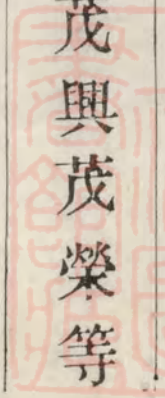 茂興茂榮等